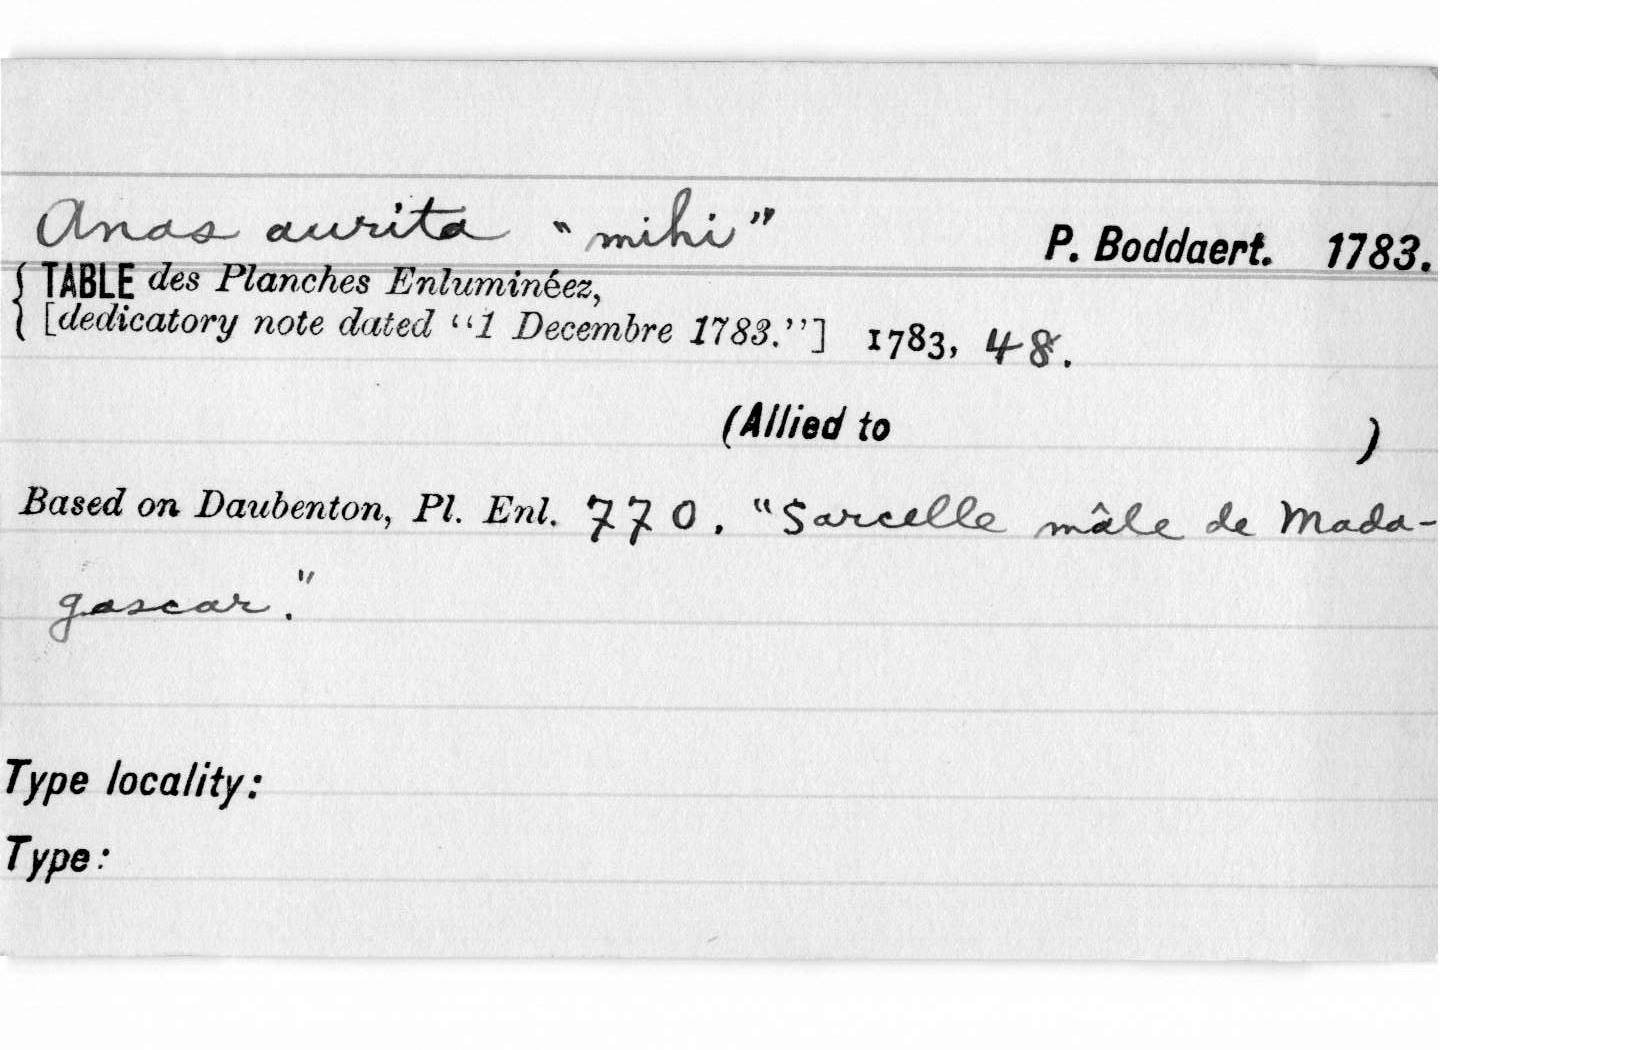 Anas aurita "mihi" P. Boddaert. 1783.
{ TABLE des Planches Enluminéez,
[dedicatory note dated "1 Decembre 1783."] 1783, 48.
(Allied to )
Based on Daubenton, Pl. Enl. 770. "Sarcelle mâle de Mada-
gascar."
Type locality:
Type: